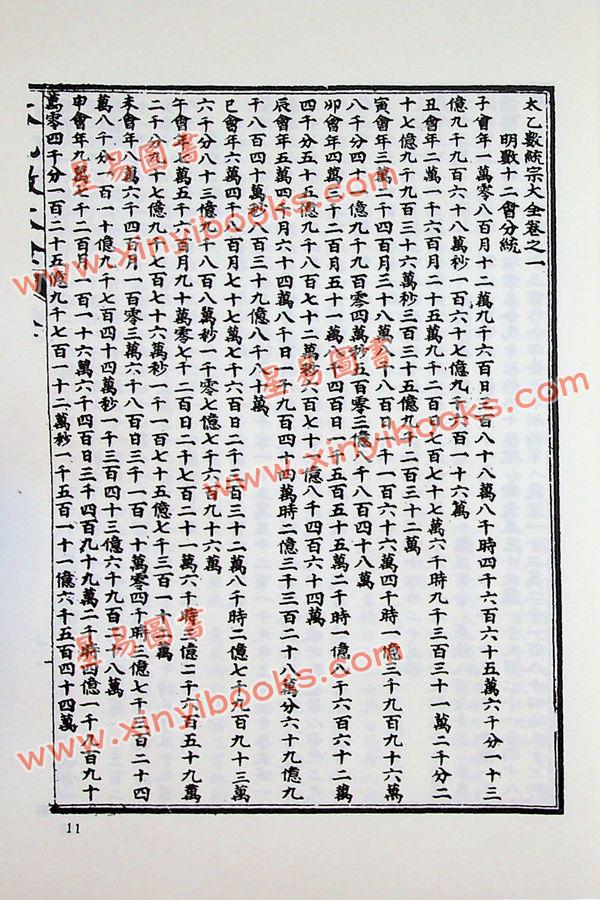 太乙數統宗大全卷之一
明數十二會分統
子會年一萬零八百月十二萬九千六百日三百八十八萬八千時四千六百六十五萬六千分一十三
億九千九百六十八萬秒一百六十七億九千六百一十六萬
丑會年二萬一千六百月二十五萬九千二百日七百七十七萬六千時九千三百三十一萬二千分二
十七億九千九百三十六萬秒三百三十五億九千二百三十二萬
寅會年三萬二千四百月三十八萬八千八百日一千一百六十六萬四千時一億三千九百九十六萬
八千分四十一億九千九百零四萬秒五百零三億八千八百四十八萬
卯會年四萬三千二百月五十一萬八千四百日一千五百五十五萬二千時一億八千六百六十二萬
四千分五十五億九千八百七十二萬秒六百七十一億八千四百六十四萬
辰會年五萬四千月六十四萬八千日一千九百四十四萬時二億三千三百二十八萬分六十九億九
千八百四十萬秒八百三十九億八千八十萬
巳會年六萬四千八百月七十七萬七千六百日二千三百三十二萬八千時二億七千九百九十三萬
六千分八十三億九千八百八萬秒一千零七億七千六百九十六萬
午會年七萬五千六百月九十萬零七千二百日二千七百二十一萬六千時三億二千六百五十九萬
二千分九十七億九千七百七十六萬秒一千一百七十五億七千三百一十二萬
未會年八萬六千四百月一百零三萬六千八百日三千一百一十萬零四千時三億七千三百二十四
萬八千分一百一十一億九千七百四十四萬秒一千三百四十三億六千九百二十八萬
申會年九萬七千二百月一百一十六萬六千四百日三千四百九十九萬二千時四億一千九百九十
萬零四千分一百二十五億九千七百一十二萬秒一千五百一十一億六千五百四十四萬
11
星易圖書
www.xinyibooks.com
星易圖書
www.xinyibooks.com
星易圖書
www.xinyibooks.com